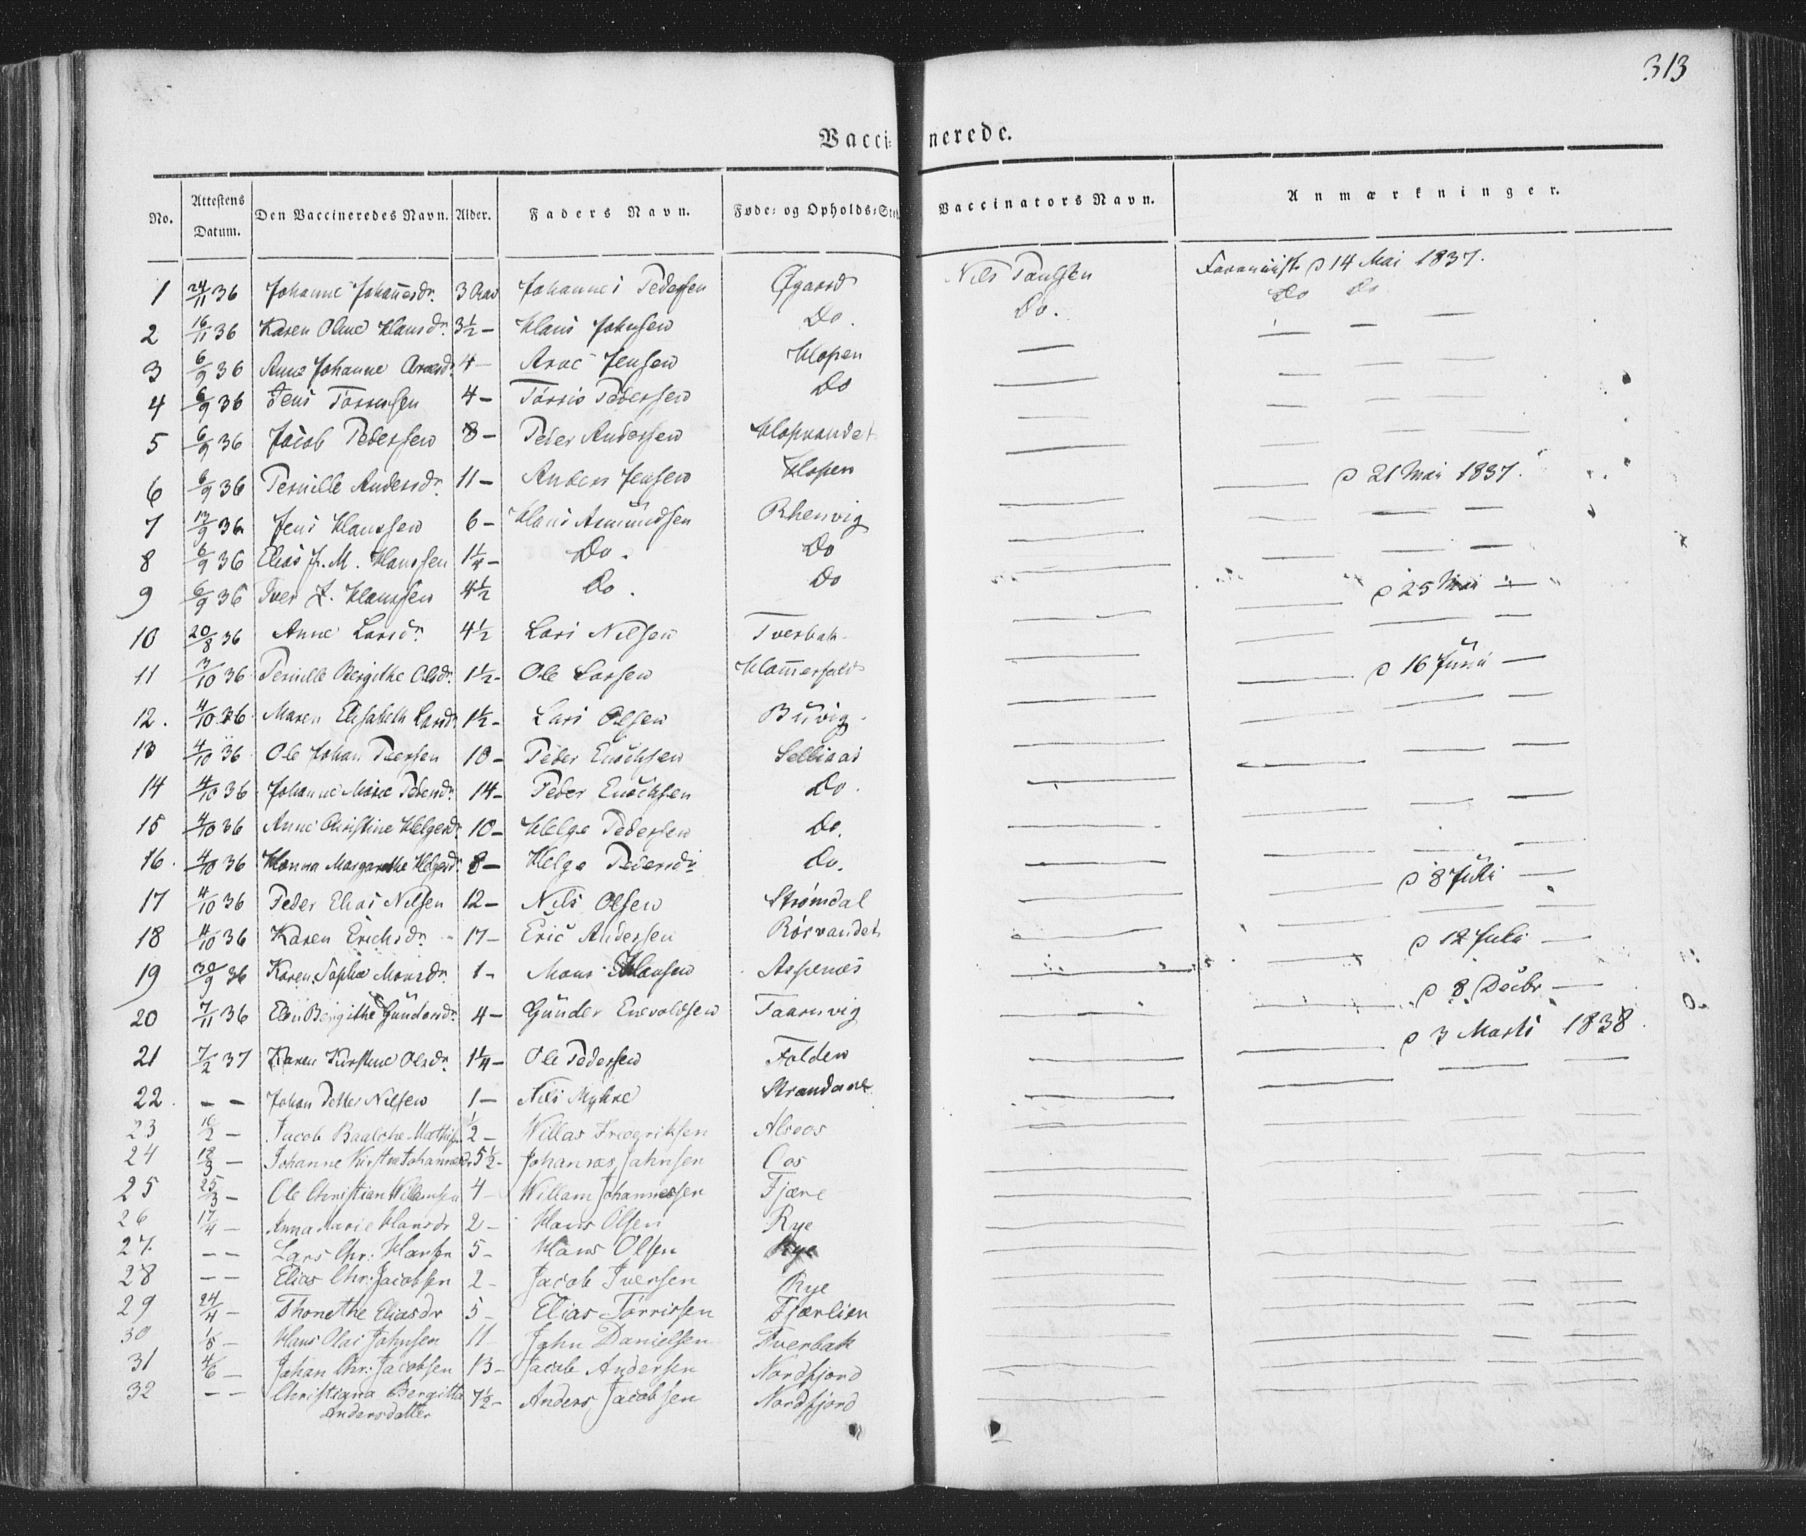 313
Vaccinerede.
No. Attestens Datum. Den Vaccineredes Navn. Alder. Faders Navn. Føde- og Opholds-Sted Vaccinators Navn. Anmærkninger.
1 24/11 36 Johanne Johannesdr. 3 Aar Johannes Pedersen Øgaard Nils Paulsen 14 Mai 1837.
2 16/11 36 Karen Oline Hansdr. 3½ — Hans Johnsen Do. Do. Do Do
3 6/9 36 Anne Johanne 4 — Jensen Klopen — —
4 6/9 36 Jens 4 — Pedersen Do — —
5 6/9 36 Jacob Pedersen 8 — Peder Andersen Klopvandet — —
6 6/9 36 Pernille Andersdr. 11 — Anders Jensen Klopen — — 21 Mai 1837.
7 13/9 36 Jens Hanssen 6 — Hans Asmundsen Rhenvig — —
8 6/9 36 Elias J. M. Hanssen 1¼ — Do. Do — —
9 6/9 36 Iver Z. Hanssen 4½ Do. Do — — 25 Mai —
10 20/8 36 Anne Larsdr. 4½ Lars Nilsen Tverbak — —
11 3/10 36 Pernille Bergithe Olsdr. 1½ — Ole Larsen — — 16 Juni —
12. 4/10 36 Maren Elisabeth Larsdr. 1½ — Lars Olsen Buvig — —
13 4/10 36 Ole Johan Pedersen 10 — Peder Enochsen Selliaas — —
14 4/10 36 Johanne Marie Pedersdr. 14 — Peder Enochsen Do. — —
15 4/10 36 Anne Christine Helgesdr. 10 — Helge Pedersen Do. — —
16. 4/10 36 Hanna Margarethe Helgesdr. 8 — Helge Pedersdr. Do. — — 8 Juli —
17 4/10 36 Peder Elias Nilsen 12 — Nils Olsen Strømdal — —
18 4/10 36 Karen Erichsdr. 17 — Eric Andersen Rørvandet — — 12 Juli —
19 30/9 36 Karen Sophie Monsdr. 1 — Mons Hansen Aspenes — — 8 Decbr —
20 7/11 36 Bergithe Gundersdr. 4 — Gunder Enevoldsen Taarnvig — — 3 Marti 1838.
21 7/2 37 Karen Kirstine Olsdr. 1¼ — Ole Pedersen Folden — —
22. — — Johan Petter Nilsen 1 — Nils Myhre Strandane — —
23 16/2 — Jacob 1/2 — Willas Fredriksen Alroos — —
24 18/3 — Johanne Kirstin Johannesdr 5½ — Johannes Jahnsen Oos — —
25 25/3 — Ole Christian Willumsen 4 — Willam Johannessen Fjære — —
26 17/4 — Anna Marie Hansdr 2 — Hans Olsen Rye — —
27. — — Lars Chr: Hansen 5 — Hans Olsen Rye — —
28 — — Elias Chr: Jacobsen 2 — Jacob Iversen Rye — —
29 24/4 — Thonethe Eliasdr 5 — Elias Torrissen Fjærlien — —
30 1/5 — Hans Olai Jahnsen 11 Jahn Danielsen Tverbak — —
31 4/6 — Johan Chr: Jacobsen 13 — Jacob Andersen Nordfjord — —
32 — — Christiana Bergitta Andersdatter 7½ — Anders Jacobsen Nordfjord — —